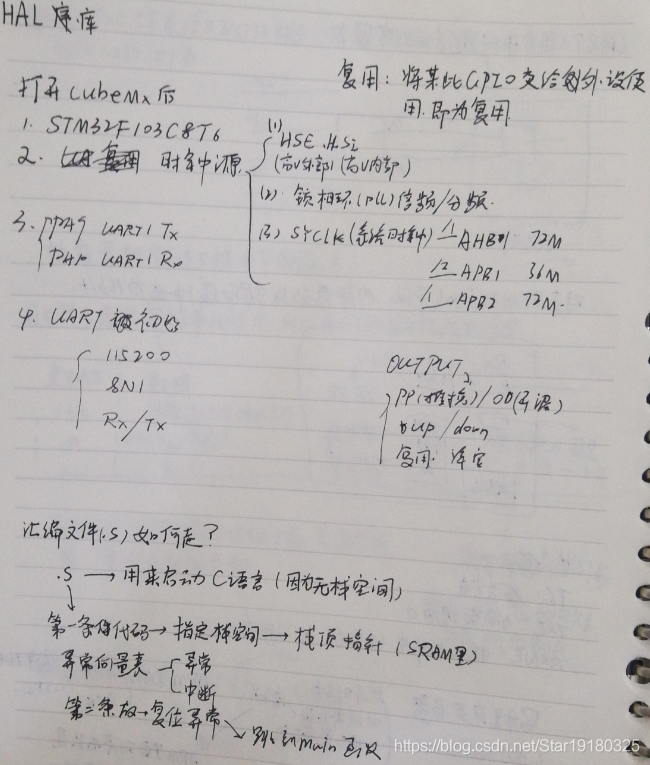 HAL 库
复用: 将某些GPIO交给外设使
用.即为复用
打开CubeMx后
1. STM32F103C8T6
2. 时钟源
(1) HSE、HSi
(高速外部)(高速内部)
(2) 锁相环(pll)倍频/分频.
(3) SYClk(系统时钟) /1 AHB1 72M
/2 APB1 36M
/1 APB2 72M.
3. PA9 UART1 Tx
PA10 UART1 Rx
4. UART 初始
115200
8N1
Rx/Tx
OUTPUT
PP(推挽)/OD(开漏)
up/down
复用.
汇编文件(.S)如何走?
.S → 用来启动C语言(因为无栈空间)
第一条 代码→指定栈空间→栈顶指针(SRAM里)
异常向量表 异常
中断
第二条放→复位异常 跳到main函数
https://blog.csdn.net/Star19180325